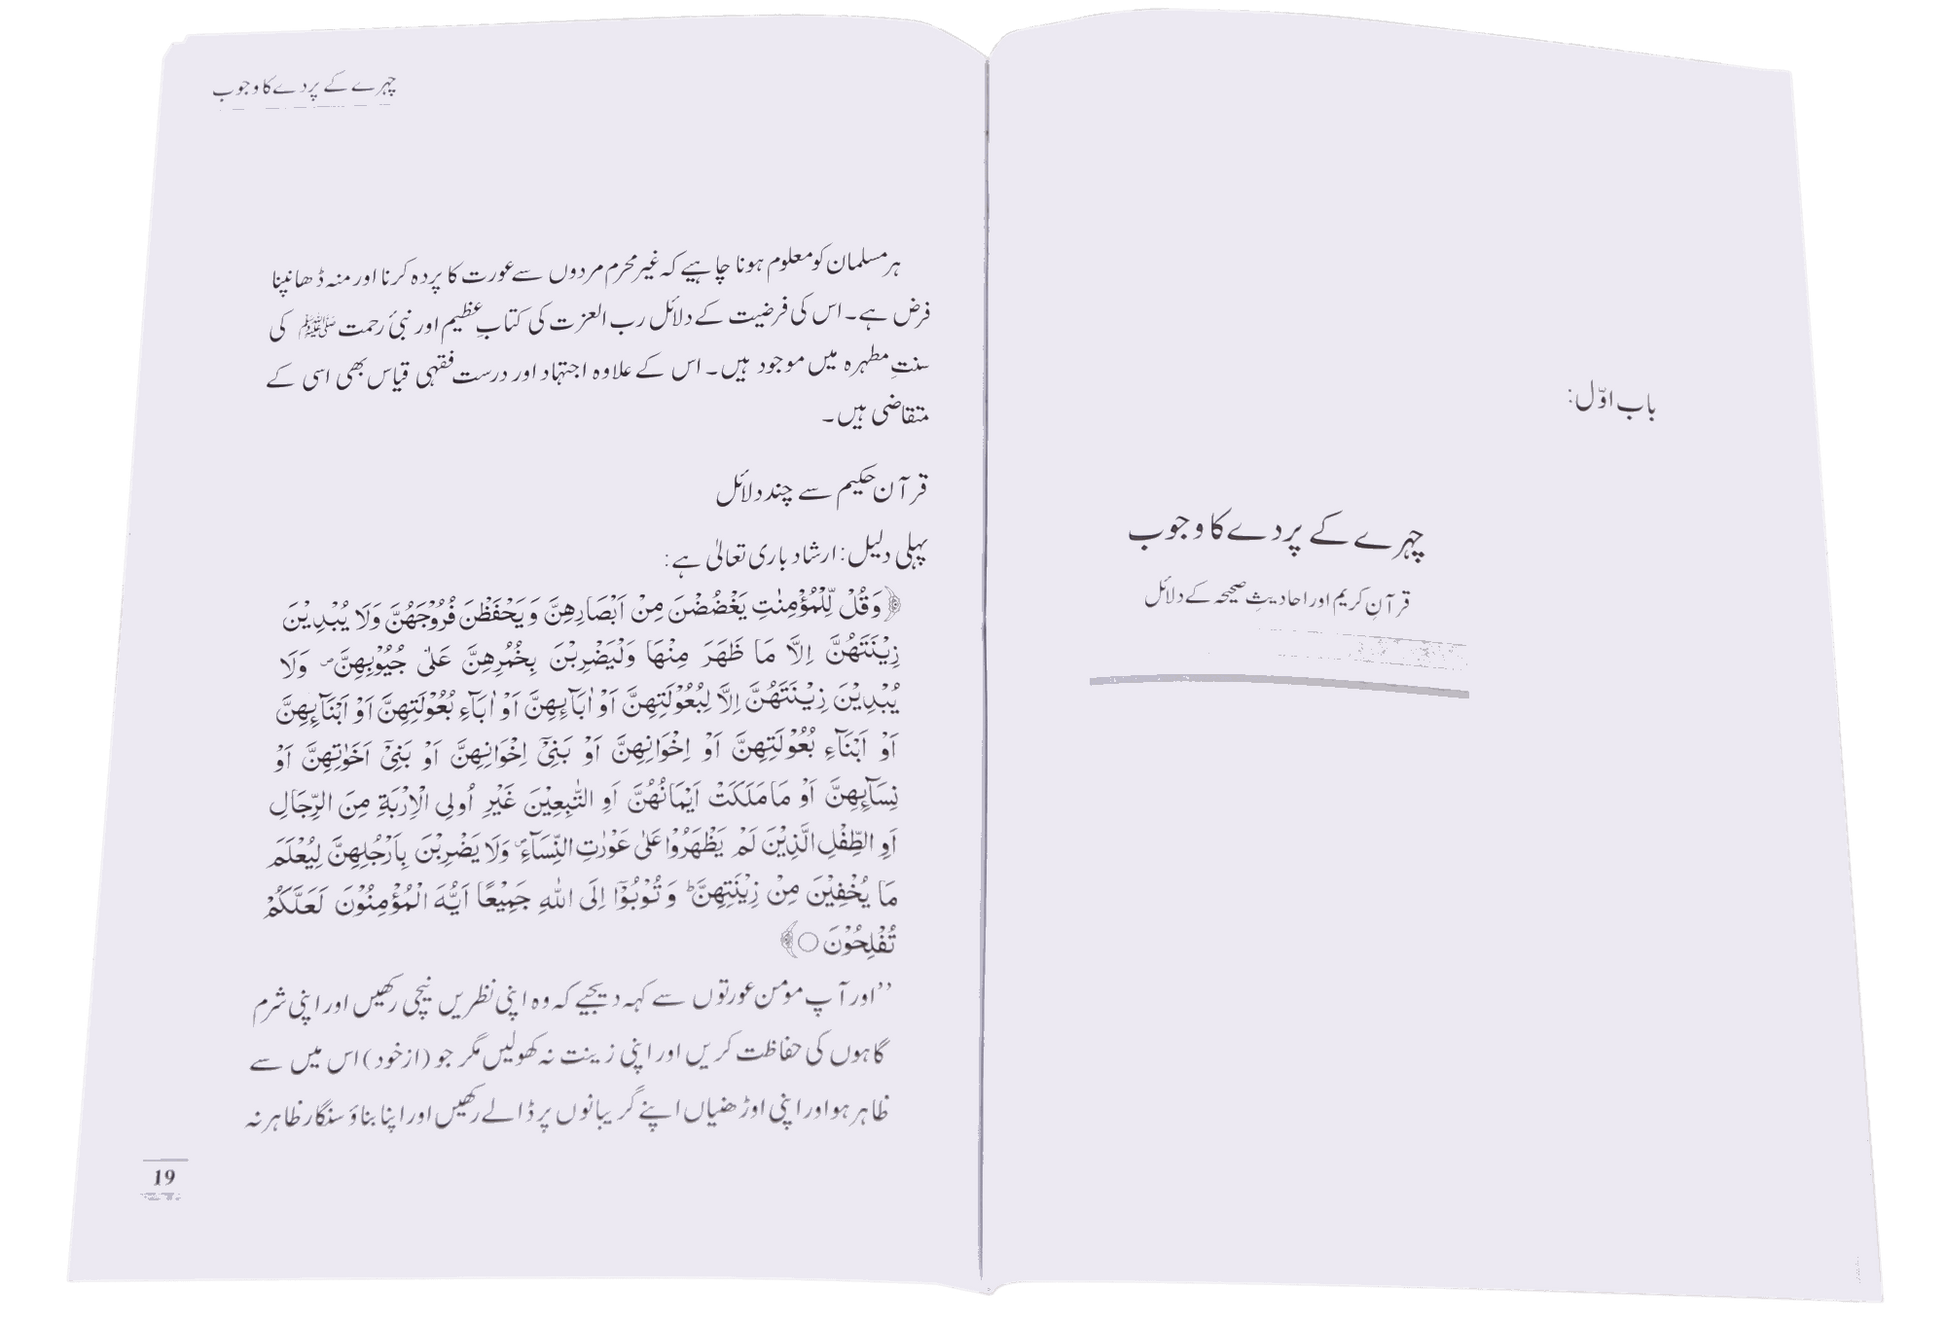 باب اوّل:
چہرے کے پردے کا وجوب
قرآنِ کریم اور احادیثِ صحیحہ کے دلائل
چہرے کے پردے کا وجوب
ہر مسلمان کو معلوم ہونا چاہیے کہ غیر محرم مردوں سے عورت کا پردہ کرنا اور منہ ڈھانپنا
فرض ہے۔ اس کی فرضیت کے دلائل رب العزت کی کتابِ عظیم اور نبیٔ رحمت ﷺ کی
سنتِ مطہرہ میں موجود ہیں۔ اس کے علاوہ اجتہاد اور درست فقہی قیاس بھی اسی کے
متقاضی ہیں۔
قرآن حکیم سے چند دلائل
پہلی دلیل: ارشاد باری تعالیٰ ہے:
﴿وَقُلْ لِّلْمُؤْمِنٰتِ يَغْضُضْنَ مِنْ اَبْصَارِهِنَّ وَيَحْفَظْنَ فُرُوْجَهُنَّ وَلَا يُبْدِيْنَ
زِيْنَتَهُنَّ اِلَّا مَا ظَهَرَ مِنْهَا وَلْيَضْرِبْنَ بِخُمُرِهِنَّ عَلٰى جُيُوْبِهِنَّ ۪ وَلَا
يُبْدِيْنَ زِيْنَتَهُنَّ اِلَّا لِبُعُوْلَتِهِنَّ اَوْ اٰبَآئِهِنَّ اَوْ اٰبَآءِ بُعُوْلَتِهِنَّ اَوْ اَبْنَآئِهِنَّ
اَوْ اَبْنَآءِ بُعُوْلَتِهِنَّ اَوْ اِخْوَانِهِنَّ اَوْ بَنِيْٓ اِخْوَانِهِنَّ اَوْ بَنِيْٓ اَخَوٰتِهِنَّ اَوْ
نِسَآئِهِنَّ اَوْ مَا مَلَكَتْ اَيْمَانُهُنَّ اَوِ التّٰبِعِيْنَ غَيْرِ اُولِي الْاِرْبَةِ مِنَ الرِّجَالِ
اَوِ الطِّفْلِ الَّذِيْنَ لَمْ يَظْهَرُوْا عَلٰى عَوْرٰتِ النِّسَآءِ ۪ وَلَا يَضْرِبْنَ بِاَرْجُلِهِنَّ لِيُعْلَمَ
مَا يُخْفِيْنَ مِنْ زِيْنَتِهِنَّ ؕ وَتُوْبُوْٓا اِلَى اللّٰهِ جَمِيْعًا اَيُّهَ الْمُؤْمِنُوْنَ لَعَلَّكُمْ
تُفْلِحُوْنَ ○﴾
’’اور آپ مومن عورتوں سے کہہ دیجیے کہ وہ اپنی نظریں نیچی رکھیں اور اپنی شرم
گاہوں کی حفاظت کریں اور اپنی زینت نہ کھولیں مگر جو (از خود) اس میں سے
ظاہر ہو اور اپنی اوڑھنیاں اپنے گریبانوں پر ڈالے رکھیں اور اپنا بناؤ سنگار ظاہر نہ
19